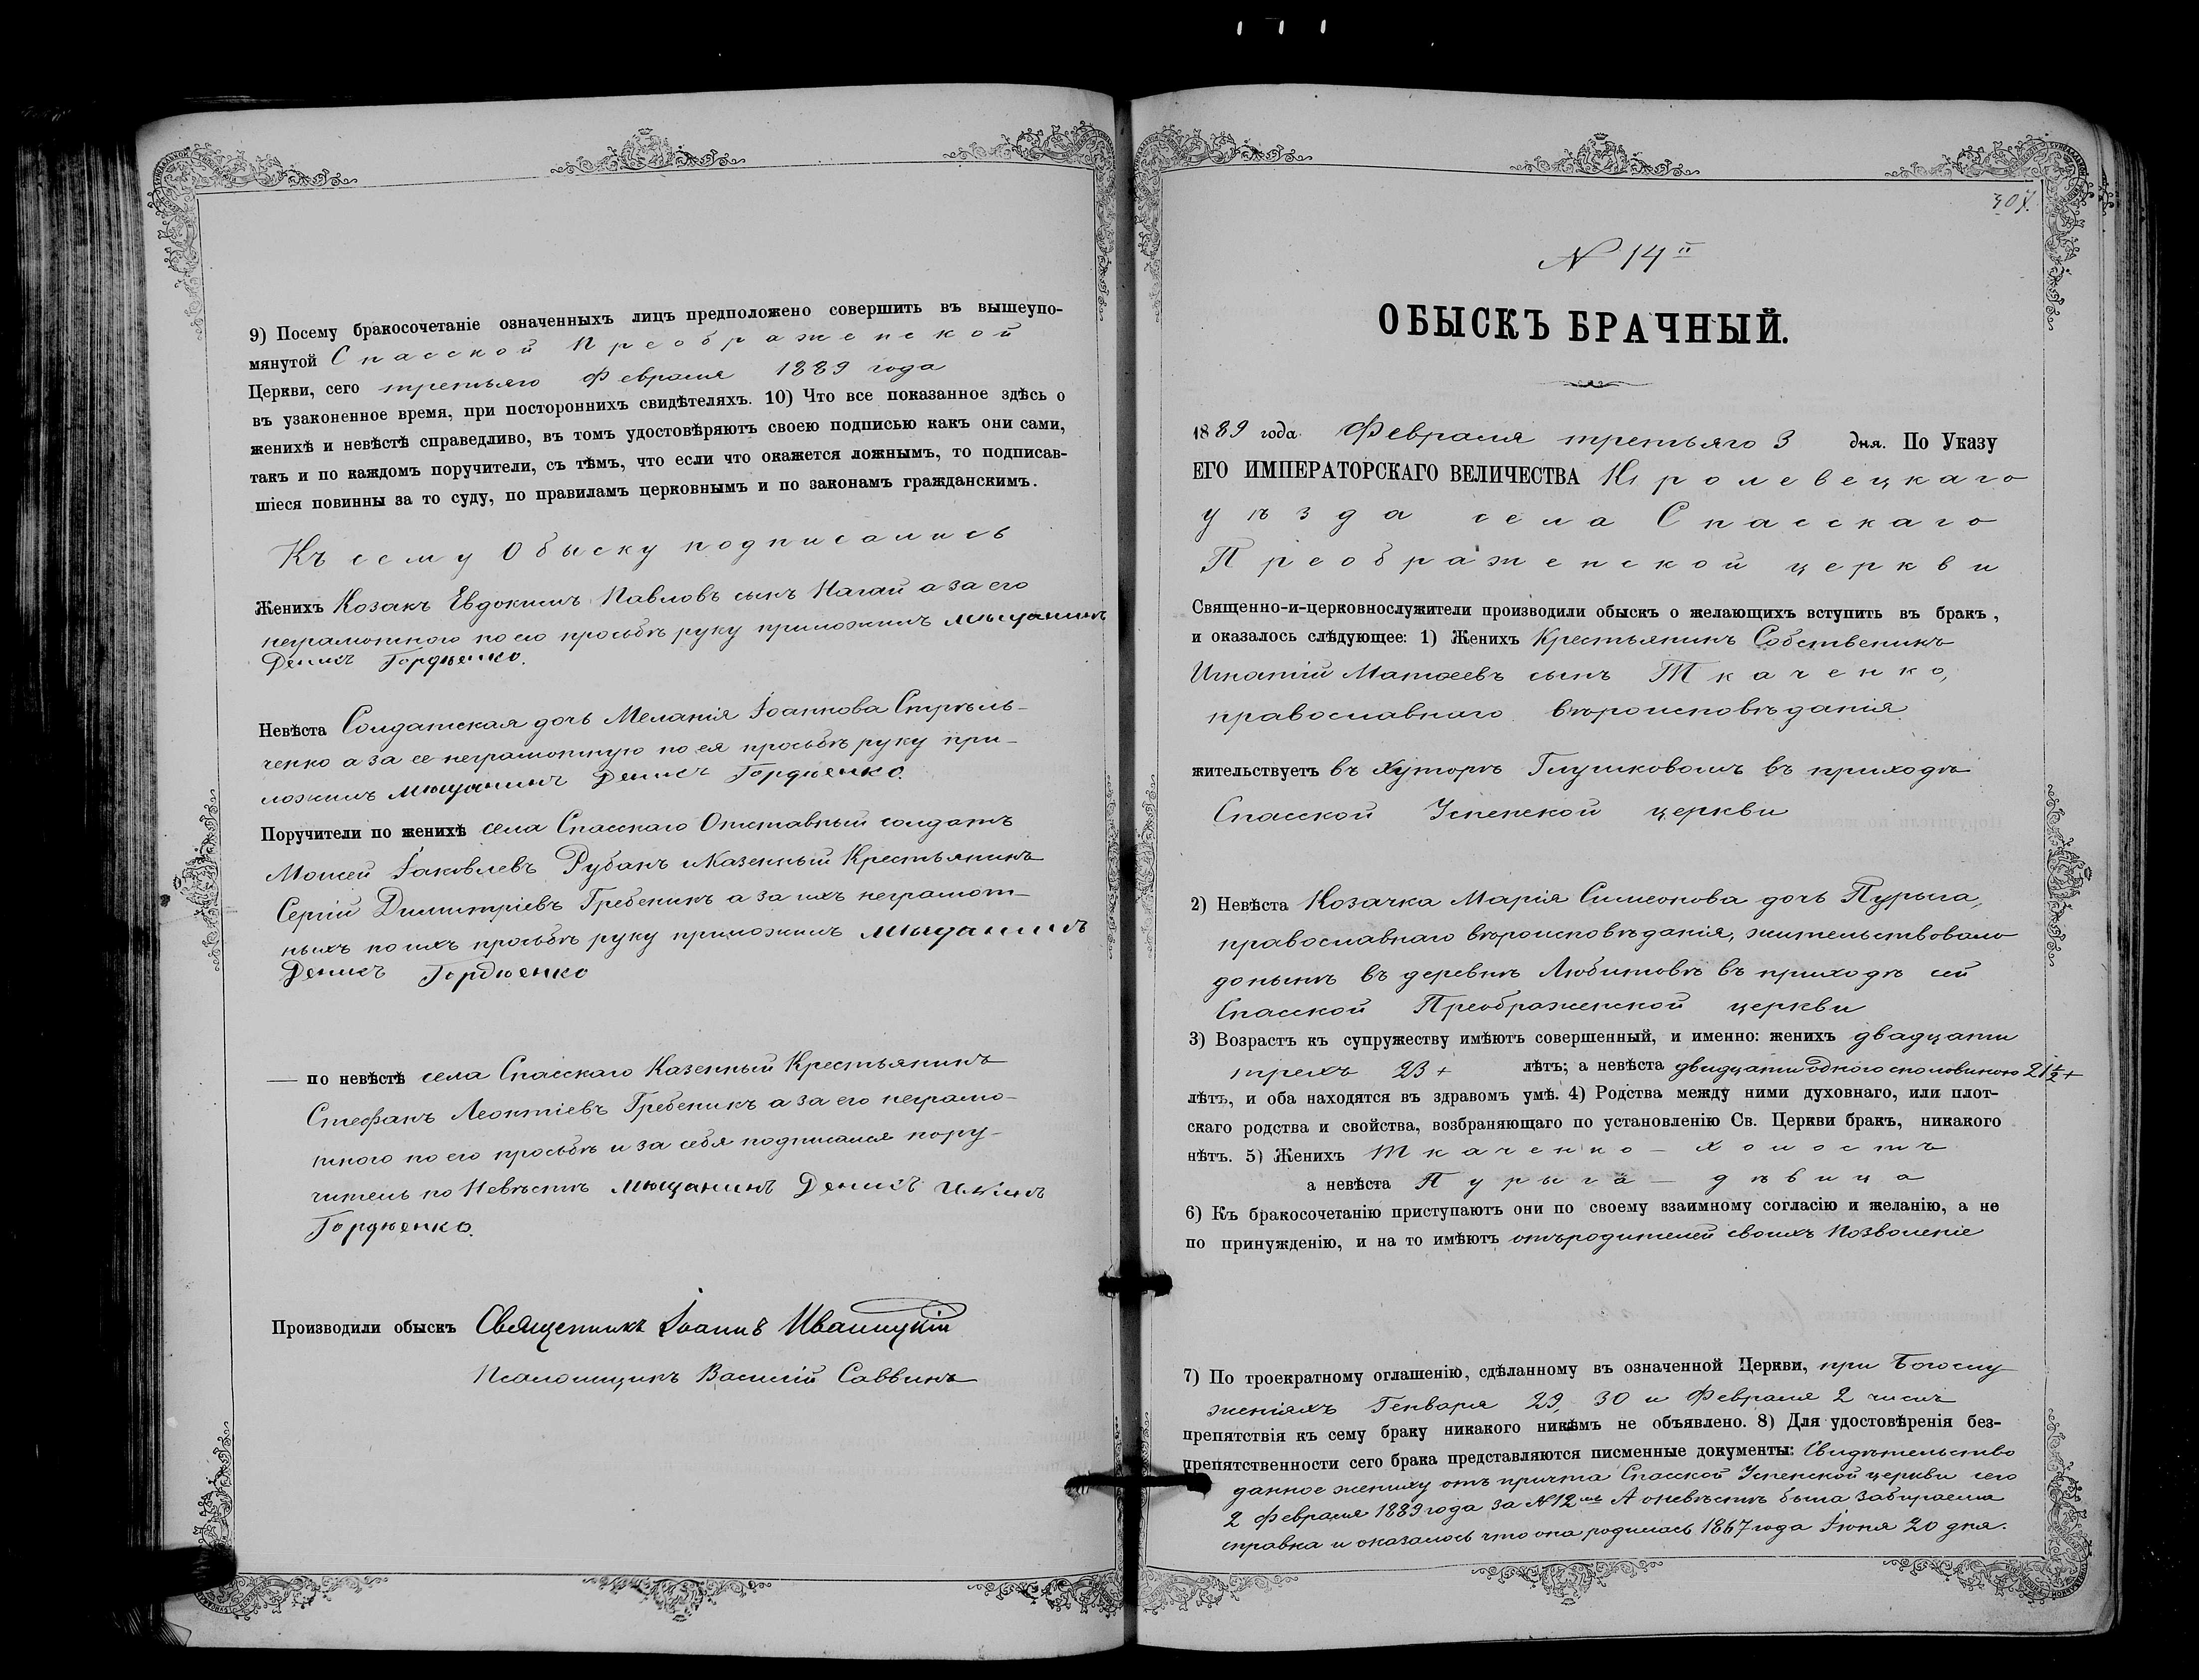 9) Посему бракосочетаніе означенныхъ лицъ предположено совершить въ вышеупо-
мянутой Спасской Преображенской
Церкви, сего третьяго Февраля 1889 года
въ узаконенное время, при постороннихъ свидѣтеляхъ. 10) Что все показанное здѣсь о
женихѣ и невѣстѣ справедливо, въ томъ удостовѣряютъ своею подписью какъ они сами,
такъ и по каждомъ поручители, съ тѣмъ, что если что окажется ложнымъ, то подписав-
шіеся повинны за то суду, по правиламъ церковнымъ и по законамъ гражданскимъ.
Къ сему Обыску подписались
Женихъ Козакъ Евдокимъ Павловъ сынъ Нагай а за его
неграмотного по его просьбѣ руку приложилъ мѣщанинъ
Денисъ Гордѣенко.
Невѣста Солдатская дочь Меланія Іоаннова Стрѣль-
ченко а за ее неграмотную по ея просьбѣ руку при-
ложилъ мѣщанинъ Денисъ Гордѣенко.
Поручители по женихѣ села Спасскаго Отставный солдатъ
Моисей Іаковлевъ Рубанъ и Казенный Крестьянинъ
Сергій Димитріевъ Гребеникъ а за ихъ неграмот-
ныхъ по ихъ просьбѣ руку приложилъ мѣщанинъ
Денисъ Гордѣенко
— по невѣстѣ села Спасскаго Казенный Крестьянинъ
Стефанъ Леонтіевъ Гребеникъ а за его неграмо-
тного по его просьбѣ и за себя подписался пору-
читель по Невѣстѣ мѣщанинъ Денисъ
Гордѣенко.
Производили обыскъ Священникъ Іоаннъ Иваницкій
Псаломщикъ Василій Саввинъ
307.
N 14й
ОБЫСКЪ БРАЧНЫЙ.
1889 года Февраля третьяго 3 дня. По Указу
ЕГО ИМПЕРАТОРСКАГО ВЕЛИЧЕСТВА Кролевецкаго
уѣзда села Спасскаго
Преображенской церкви
Священно-и-церковнослужители производили обыскъ о желающихъ вступить въ бракъ,
и оказалось слѣдующее: 1) Женихъ Крестьянинъ Собственикъ
Игнатій Матѳеевъ сынъ Ткаченко,
православнаго вѣроисповѣданія
жительствуетъ въ Хуторѣ Глушковомъ въ приходѣ
Спасской Успенской церкви
2) Невѣста Козачка Марія Симеонова дочь Пурыга,
православнаго вѣроисповѣданія, жительствовало
донынѣ въ деревнѣ Любитовѣ въ приходѣ сей
Спасской Преображенской церкви
3) Возрастъ къ супружеству имѣютъ совершенный, и именно: женихъ двадцати
трехъ 23+ лѣтъ; а невѣста двидцати одного споловиною 21½+
лѣтъ, и оба находятся въ здравомъ умѣ. 4) Родства между ними духовнаго, или плот-
скаго родства и свойства, возбраняющаго по установленію Св. Церкви бракъ, никакого
нѣтъ. 5) Женихъ Ткаченко — холостъ
а невѣста Пурыга — дѣвица
6) Къ бракосочетанію приступаютъ они по своему взаимному согласію и желанію, а не
по принужденію, и на то имѣютъ отъ родителей своихъ Позволеніе
7) По троекратному оглашенію, сдѣланному въ означенной Церкви, при Богослу
женіяхъ Генваря 29, 30 и Февраля 2 числъ
препятствія къ сему браку никакого никѣмъ не объявлено. 8) Для удостовѣренія без-
препятственности сего брака представляются писменные документы: Свидѣтельство
данное жениху отъ причта Спасской Успенской церкви сего
2 Февраля 1889 года за N 12мъ А оневѣстѣ была забираема
справка и оказалось что она родилась 1867 года Іюня 20 дня.